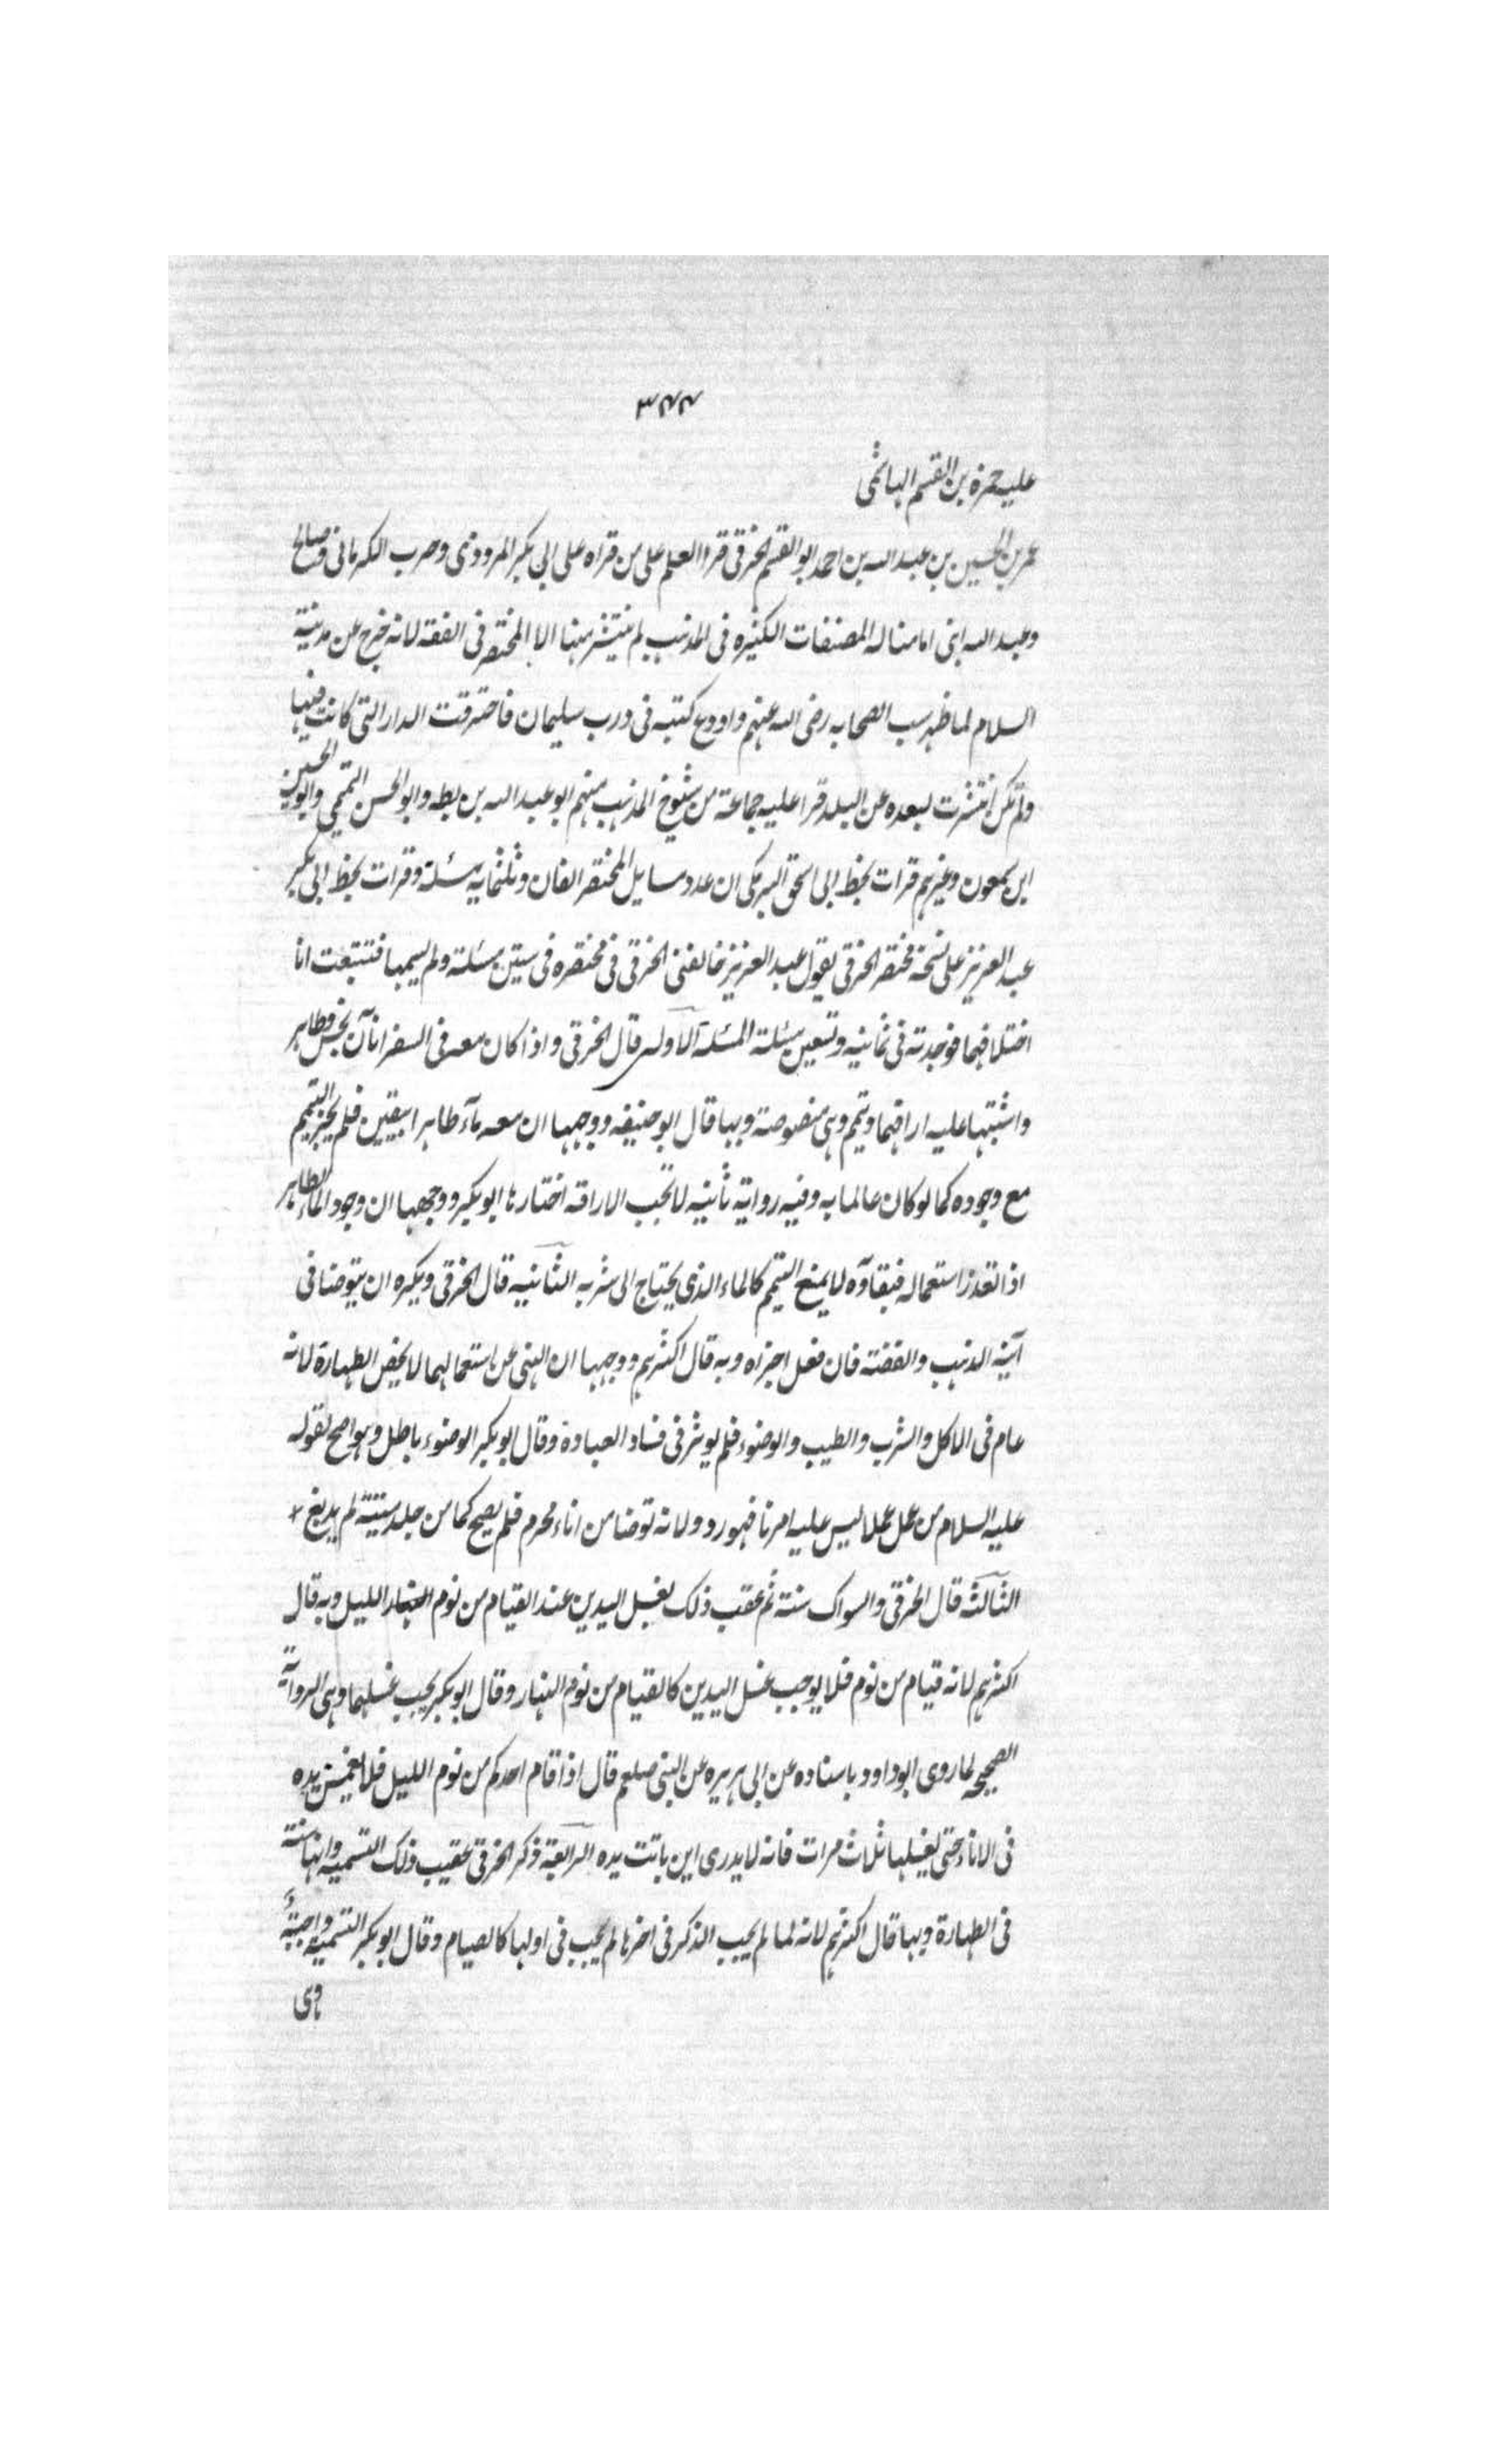 ٣٤٤
عليه حمزه بن القسم الهاشمى
عمر بن الحسين بن عبد الله بن احمد ابو القسم الخرقى قرا العلم على من قراه على ابى بكر المروذى وحرب الكرمانى وصالح
وعبد الله ابنى امامنا له المصنفات الكثيره فى المذهب لم ينتشر منها الا المختصر فى الفقه لانه خرج عن مدينة
السلام لما ظهر سب الصحابه رضى الله عنهم واودع كتبه فى درب سليمان فاحترقت الدار التى كانت فيها
ولم تكن انتشرت لبعده عن البلد قرا عليه جماعة من شيوخ المذهب منهم ابو عبد الله بن بطه وابو الحسن التميمى وابو الحسين
ابن سمعون وغيرهم قرات بخط ابى اسحق البرمكى ان عدد مسايل المختصر الفان وثلثمايه مسئلة وقرات بخط ابى بكر
عبد العزيز على نسخة مختصر الخرقى يقول عبد العزيز خالفنى الخرقى فى مختصره فى ستين مسئلة ولم يسمها فتتبعت انا
اختلافهما فوجدته فى ثمانيه وتسعين مسئلة المسئلة الاولى قال الخرقى واذا كان معه فى السفر اناآن نجس وطاهر
واشتبها عليه اراقهما وتيمم وهى منصوصة وبها قال ابو حنيفه ووجهها ان معه مآء طاهرا بيقين فلم يجز التيمم
مع وجوده كما لو كان عالما به وفيه رواية ثانيه لا تجب الاراقه اختارها ابو بكر ووجهها ان وجود الماء الطاهر
اذا تعذر استعماله فبقاؤه لا يمنع التيمم كالماء الذى يحتاج الى شربه الثانيه قال الخرقى ويكره ان يتوضا فى
آنية الذهب والفضة فان فعل اجزاه وبه قال اكثرهم ووجهها ان النهى عن استعمالهما لا يخص الطهارة لانه
عام فى الاكل والشرب والطيب والوضوء فلم يوثر فى فساد العبادة وقال ابو بكر الوضوء باطل وهو اصح لقوله
عليه السلام من عمل عملا ليس عليه امرنا فهو رد ولانه توضا من اناء محرم فلم يصح كما من جلد ميتة لم يدبغ
الثالثه قال الخرقى والسواك سنة ثم عقب ذلك بغسل اليدين عند القيام من نوم الليل وبه قال
اكثرهم لانه قيام من نوم فلا يوجب غسل اليدين كالقيام من نوم النهار وقال ابو بكر يجب غسلهما وهى الروآية
الصحيحه لما روى ابو داود باسناده عن ابى هريره عن النبى صلعم قال اذا قام احدكم من نوم الليل فلا يغمس يده
فى الاناء حتى يغسلها ثلاث مرات فانه لا يدرى اين باتت يده الرابعة ذكر الخرقى عقيب ذلك التسميه وانها سنة
فى الطهارة وبها قال اكثرهم لانه لما لم يجب الذكر فى اخرها لم يجب فى اولها كالصيام وقال ابو بكر التسميه واجبة
وهى